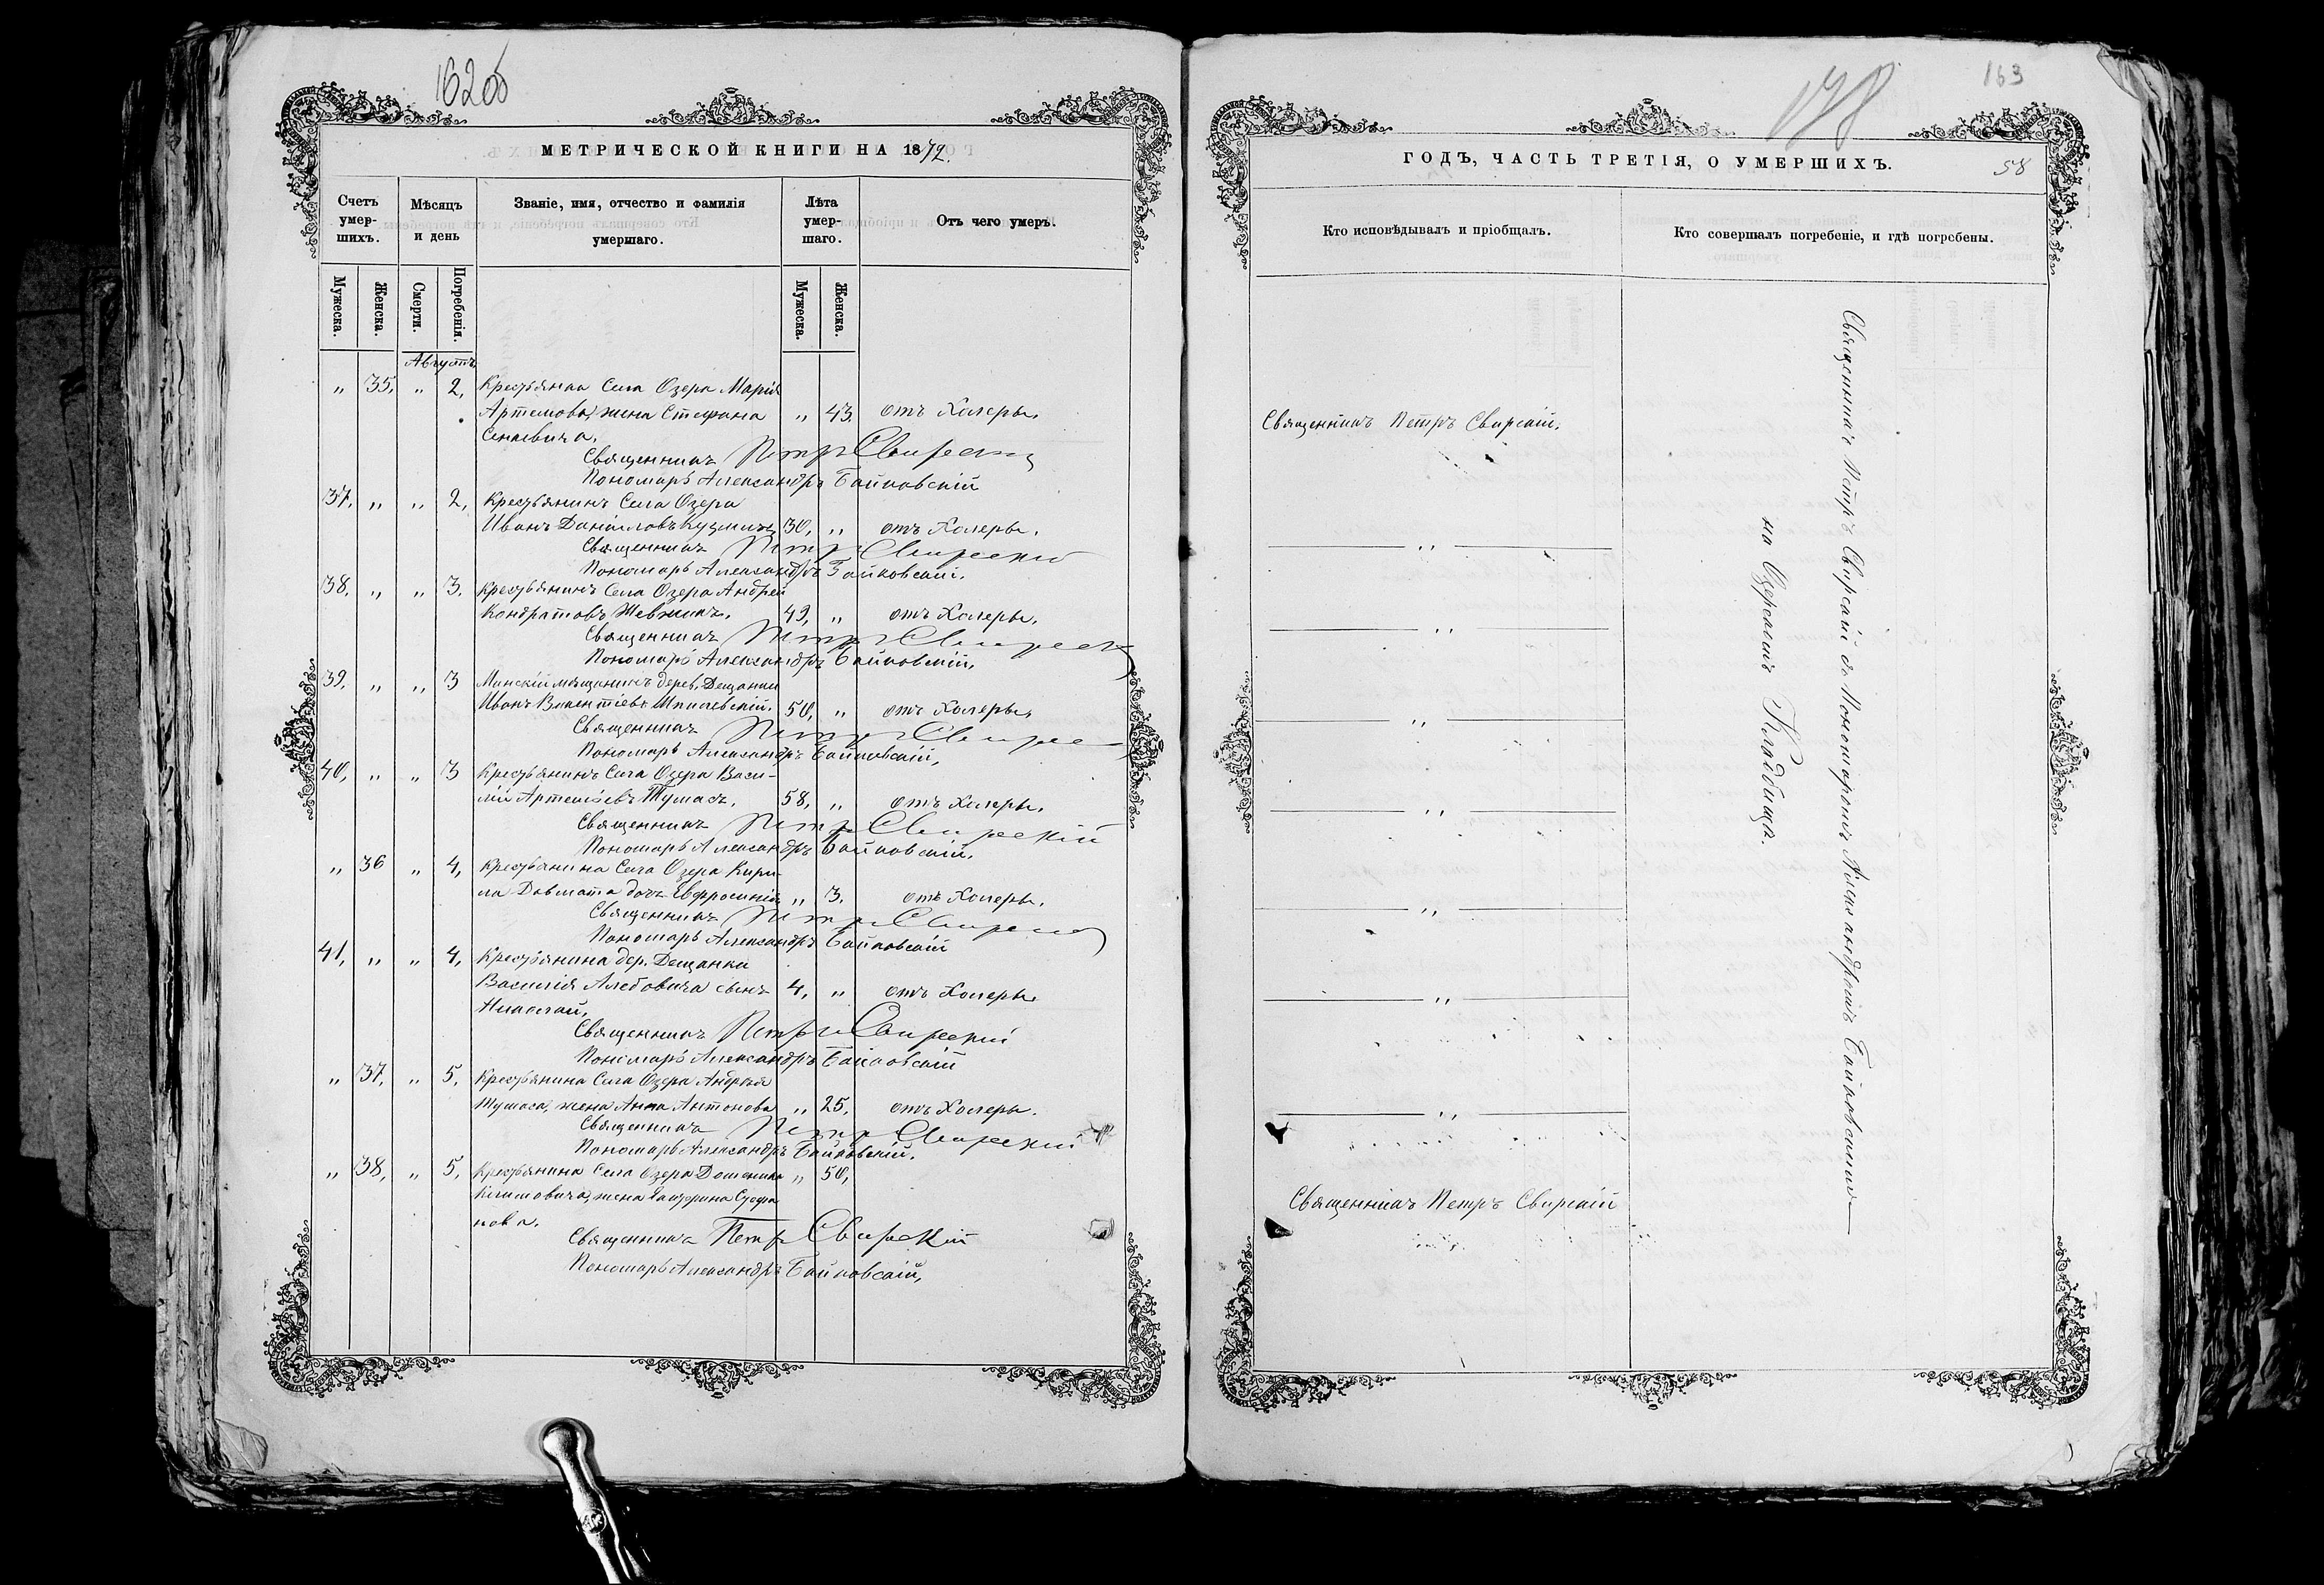 162об
МЕТРИЧЕСКОЙ КНИГИ НА 1872.
Счетъ умер-шихъ.
Мѣсяцъ и день
Званіе, имя, отчество и фамилія умершаго.
Лѣта умер-шаго.
Отъ чего умеръ.
Мужеска. Женска. Смерти. Погребенія. Мужеска. Женска.
Августъ
„ 35, „ 2, Крестьянка Села Озера Марія
Артемова, жена Стефана „ 43. отъ Холеры.
Сенкевича.
Священникъ Петръ Свирскій
Пономарь Александръ Байковскій
37, „ „ 2, Крестьянинъ Села Озера
Иванъ Даніиловъ 30, „ отъ Холеры.
Священникъ Петръ Свирскій
Пономарь Александръ Байковскій.
38, „ „ 3, Крестьянинъ Села Озера Андрей
Кондратовъ 49, „ отъ Холеры.
Священникъ Петръ Свирскій
Пономарь Александръ Байковскій.
39, „ „ 3 Минскій мѣщанинъ дерев. Дещанки
Иванъ Викентіевъ 50, „ отъ Холеры,
Священникъ Петръ Свирскій
Пономарь Александръ Байковскій,
40, „ „ 3 Крестьянинъ Села Озера Васи-
лій Артеміевъ Тумасъ, 58, „ отъ Холеры.
Священникъ Петръ Свирскій
Пономарь Александръ Байковскій.
„ 36 „ 4, Крестьянина Села Озера Кири-
ла Довмата дочь Евфросинія „ 3. отъ Холеры.
Священникъ Петръ Свирскій
Пономарь Александръ Байковскій
41, „ „ 4, Крестьянина дер. Дещанки
Василія Алебовича сынъ 4, „ отъ Холеры.
Николай,
Священникъ Петръ Свирскій
Пономарь Александръ Байковскій
„ 37, „ 5, Крестьянина Села Озера Андрея
Тумаса, жена Анна Антонова „ 25, отъ Холеры.
Священникъ Петръ Свирскій
Пономарь Александръ Байковскій.
„ 38, „ 5, Крестьянина Села Озера Доминика „ 50,
Климовича, жена Екатерина Стефа
нова.
Священникъ Петръ Свирскій
Пономарь Александръ Байковскій,
178
163
ГОДЪ, ЧАСТЬ ТРЕТІЯ, О УМЕРШИХЪ.
58
Кто исповѣдывалъ и пріобщалъ.
Кто совершалъ погребеніе, и гдѣ погребены.
Священникъ Петръ Свирскій.
„
„
„
„
„
„
„
Священникъ Петръ Свирскій
Священникъ Петръ Свирскій съ Пономаремъ Александромъ Байковскимъ
на Озерскомъ Кладбищѣ.